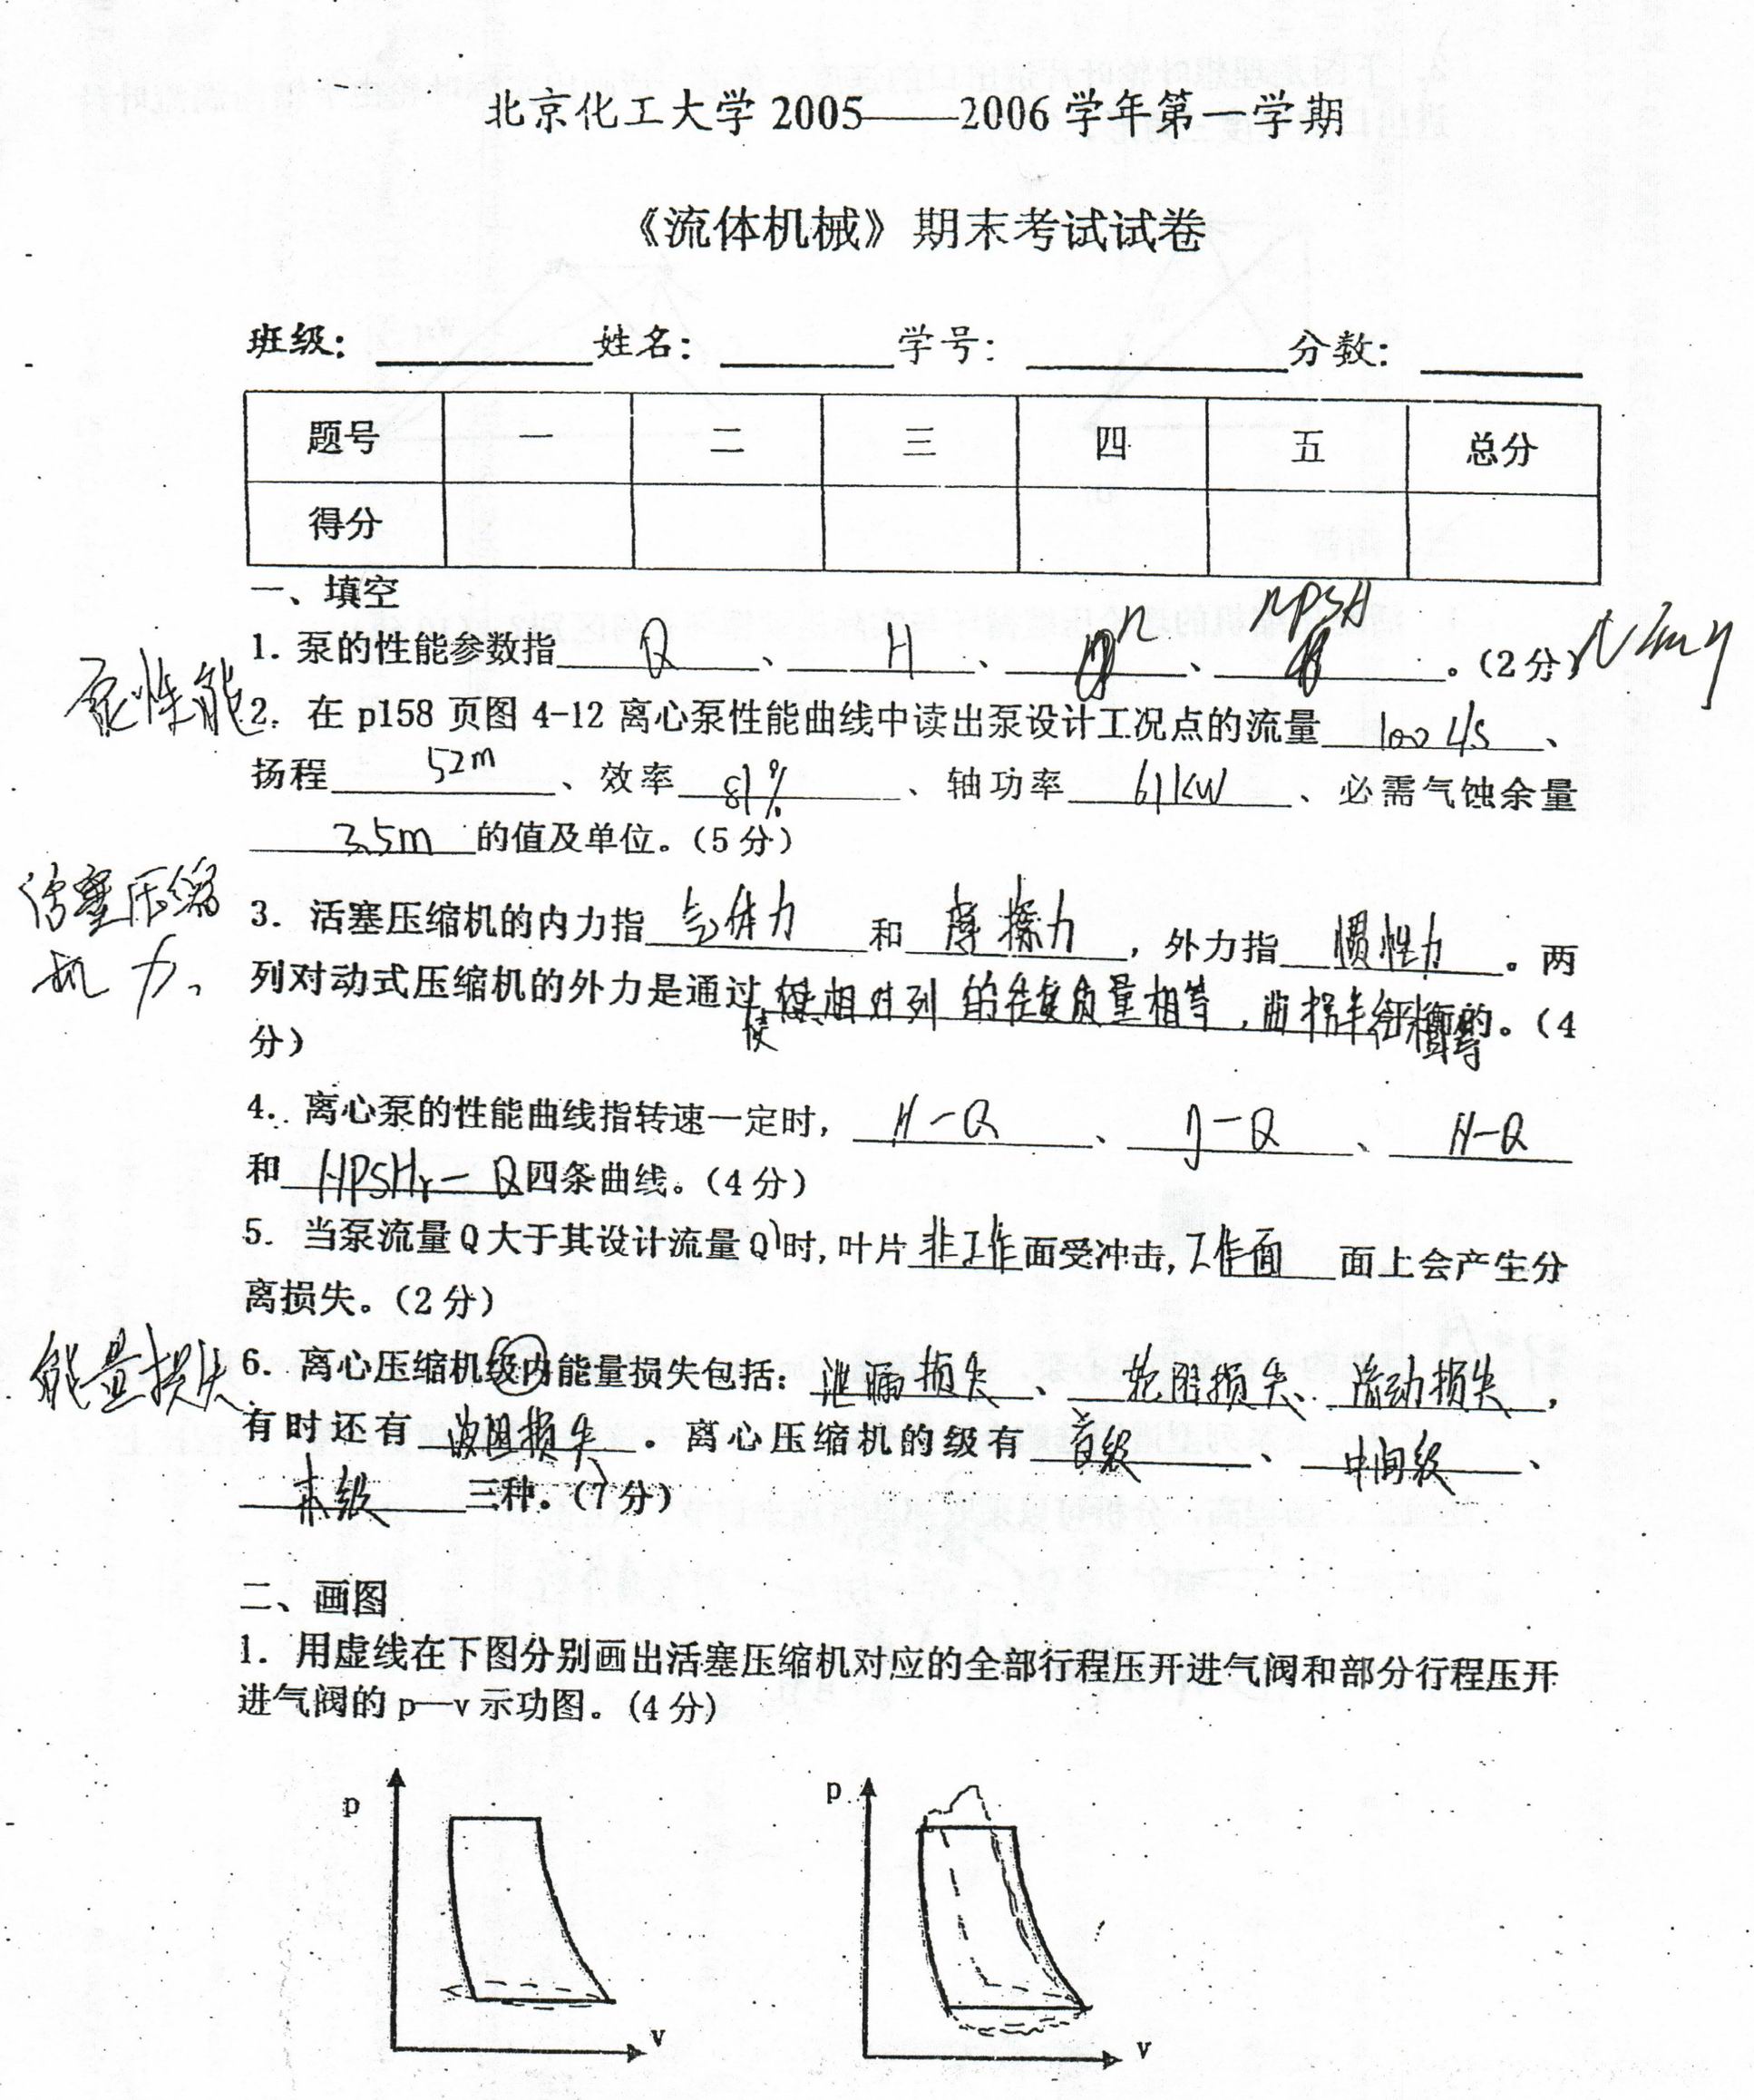 北京化工大学 2005——2006 学年第一学期
《流体机械》期末考试试卷
班级： 姓名： 学号： 分数：
题号 一 二 三 四 五 总分
得分
一、填空
NPSH
1. 泵的性能参数指 Q 、 H 、 n 、 。（2 分）
泵性能
2. 在 p158 页图 4-12 离心泵性能曲线中读出泵设计工况点的流量 100 L/s 、
扬程 52m 、效率 81% 、轴功率 61KW 、必需气蚀余量
3.5m 的值及单位。（5 分）
活塞压缩
机 力、
3. 活塞压缩机的内力指 气体力 和 摩擦力 ，外力指 惯性力 。两
列对动式压缩机的外力是通过 使相对列 的往复质量相等，曲拐半径 的。（4
分）
4. 离心泵的性能曲线指转速一定时， H-Q 、 η-Q 、 N-Q
和 NPSHr-Q 四条曲线。（4 分）
5. 当泵流量 Q 大于其设计流量 Q 时，叶片 非工作 面受冲击， 工作面 面上会产生分
离损失。（2 分）
能量损失
6. 离心压缩机级内能量损失包括： 泄漏损失 、 轮阻损失、 流动损失 ，
有时还有 波阻损失 。离心压缩机的级有 首级 、 中间级 、
末级 三种。（7 分）
二、画图
1. 用虚线在下图分别画出活塞压缩机对应的全部行程压开进气阀和部分行程压开
进气阀的 p—v 示功图。（4 分）
p p
v v